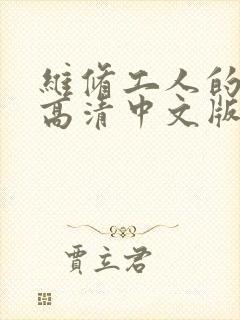 維脩工人的
高清中文版
賈立君